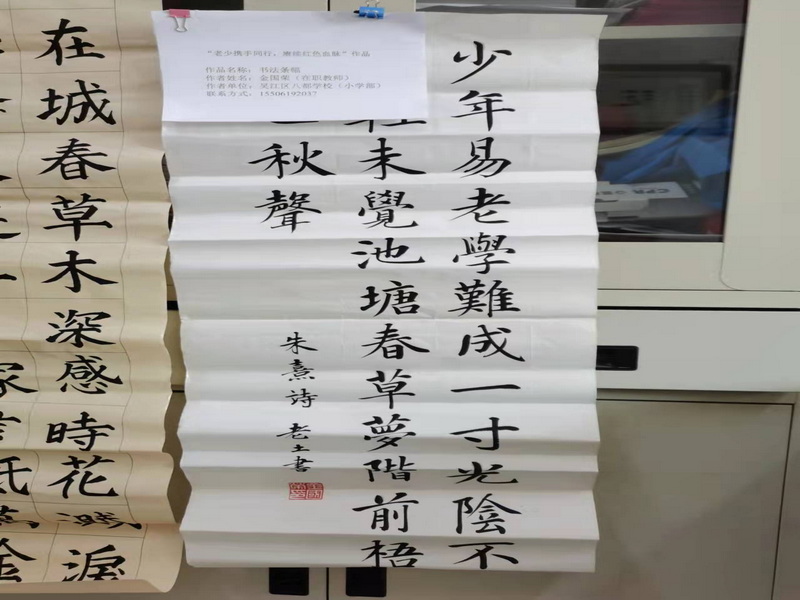 “老少携手同行，赓续红色血脉”作品
作品名称：书法条幅
作者姓名：金国荣（在职教师）
作者单位：吴江区八都学校（小学部）
联系方式：15506192037
少年易老學難成一寸光陰不
未覺池塘春草夢階前梧
秋聲
朱熹詩 老土書
在城春草木深感時花濺淚